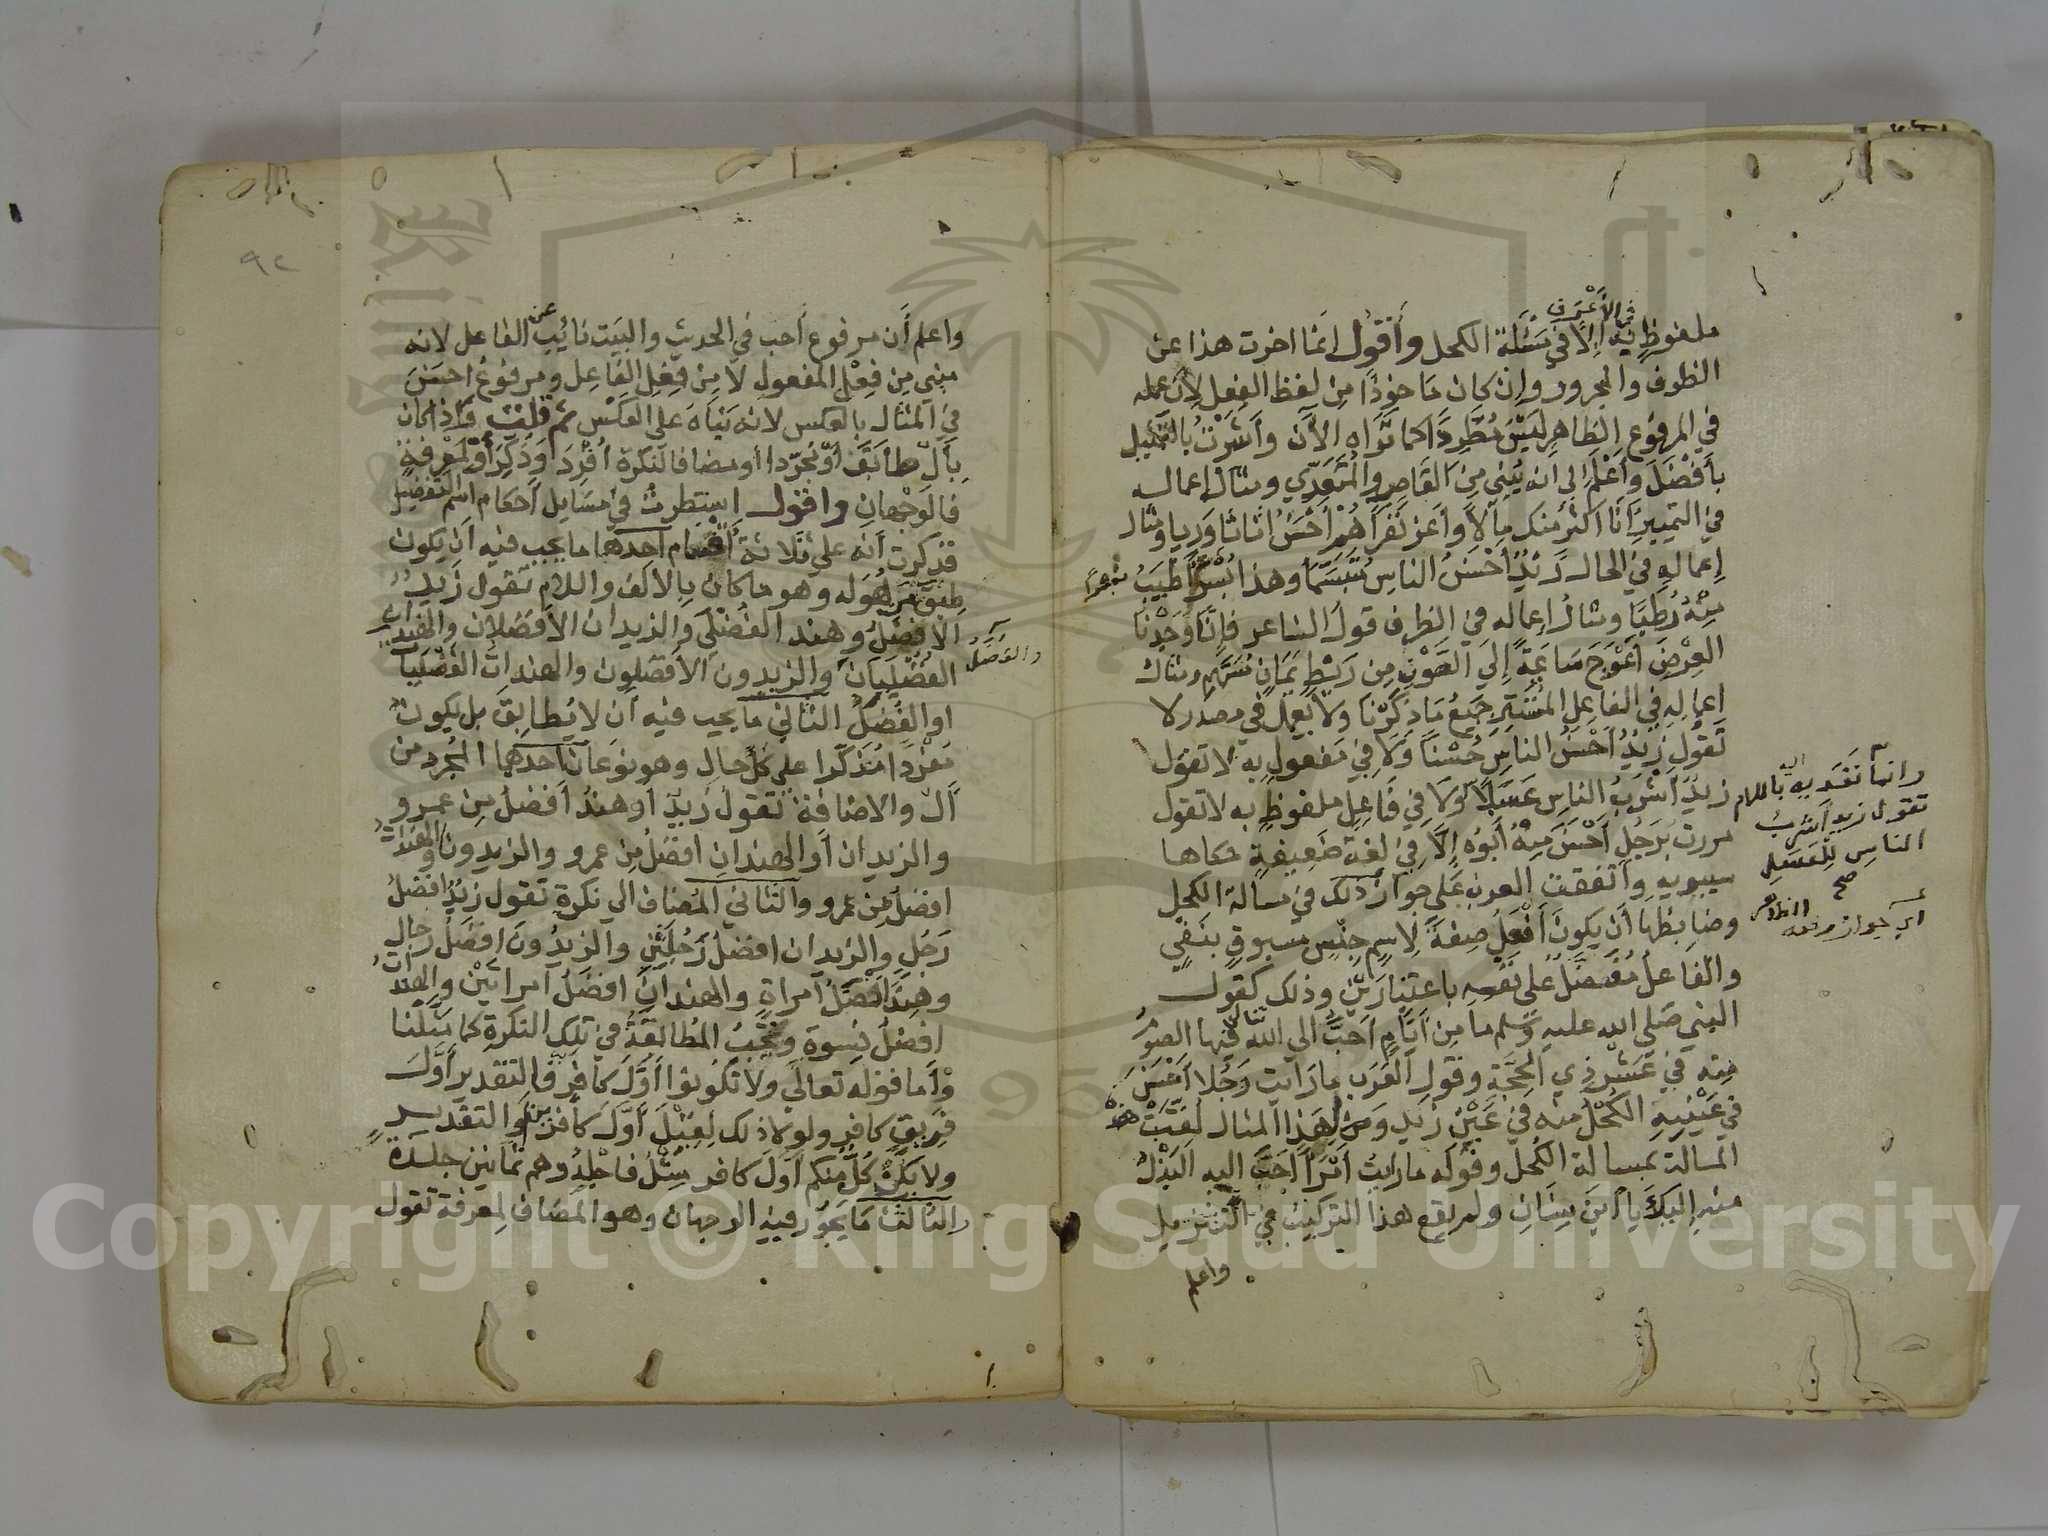 في الأعرف
ملفوظ به إلا في مسئلة الكحل وأقول انما اخرت هذا عن
الظرف والمجرور وإن كان مأخوذا من لفظ الفعل لأن عمله
في المرفوع الظاهر ليس مطردا كما تراه الآن وأشرت بالتمثيل
بأفضل وأعلم إلى انه يبنى من القاصر والمتعدي ومثال اعماله
في التمييز أنا اكثر منك مالا وأعز نفرا هم أحسن أثاثا ورئيا ومثال
إعماله في الحال زيد أحسن الناس متبسما وهذا بسرا أطيب
منه رطبا ومثال إعماله في الظرف قول الشاعر فإنا وجدنا
العرض أحوج ساعة إلى الصون من ريط يمان مسهم ومثال
اعماله في الفاعل المستتر جميع ما ذكرنا ولا يعمل في مصدر لا
تقول زيد أحسن الناس حسنا ولا في مفعول به لا تقول
زيد أشرب الناس عسلا ولا في فاعل ملفوظ به لا تقول
مررت برجل أحسن منه أبوه إلا في لغة ضعيفة حكاها
سيبويه واتفقت العرب على جواز ذلك في مسألة الكحل
وضابطها أن يكون أفعل صفة لاسم جنس مسبوق بنفي
والفاعل مفضل على نفسه باعتبارين وذلك كقول
النبي صلى الله عليه وسلم ما من أيام أحب الى الله فيها الصوم
منه في عشر ذي الحجة وقول العرب ما رأيت رجلا أحسن
في عينيه الكحل منه في عين زيد وبهذا المثال لقبت هذه
المسالة بمسالة الكحل وقوله ما رايت امرأ أحب اليه البذل
منه إليك يا ابن سنان ولم يقع هذا التركيب في التنزيل
واعلم
وانما تعديه باللام
تقول زيد أشرب
الناس للعسل
صح
اي جواز رفعه الظاهر
٩٢
واعلم أن مرفوع أحب في الحديث والبيت نائب عن الفاعل لانه
مبني من فعل المفعول لا من فعل الفاعل ومرفوع أحسن
في المثال بالعكس لانه بناه على العكس ثم قلت وإذا كان
بأل طابق أو مجردا أو مضافا لنكرة أفرد وذكر أو لمعرفة
فالوجهان واقول استطردت في مسايل أحكام اسم التفضيل
فذكرت أنه على ثلاثة أقسام أحدها ما يجب فيه أن يكون
طبق من هو له وهو ما كان بالألف واللام تقول زيد
الأفضل وهند الفضلى والزيدان الأفضلان والهندان
الفضليان والزيدون الأفضلون والهندات الفضليات
والفضل
او الفضل الثاني ما يجب فيه أن لا يطابق بل يكون
مفردا مذكرا على كل حال وهو نوعان أحدهما المجرد من
أل والاضافة تقول زيد أو هند أفضل من عمرو
والزيدان أو الهندان أفضل من عمرو والزيدون والهندات
افضل من عمرو والثاني المضاف الى نكرة تقول زيد أفضل
رجل والزيدان افضل رجلين والزيدون افضل رجال
وهند أفضل امراة والهندان افضل امراتين والهندات
افضل نسوة وتجب المطابقة في تلك النكرة كما مثلنا
وأما قوله تعالى ولا تكونوا أول كافر به فالتقدير أول
فريق كافر ولولا ذلك لقيل أول كافرين أو التقدير
ولا يكن كل منكم أول كافر مثل فاجلدوهم ثمانين جلدة
الثالث ما يجوز فيه الوجهان وهو المضاف لمعرفة تقول
Copyright © King Saud University